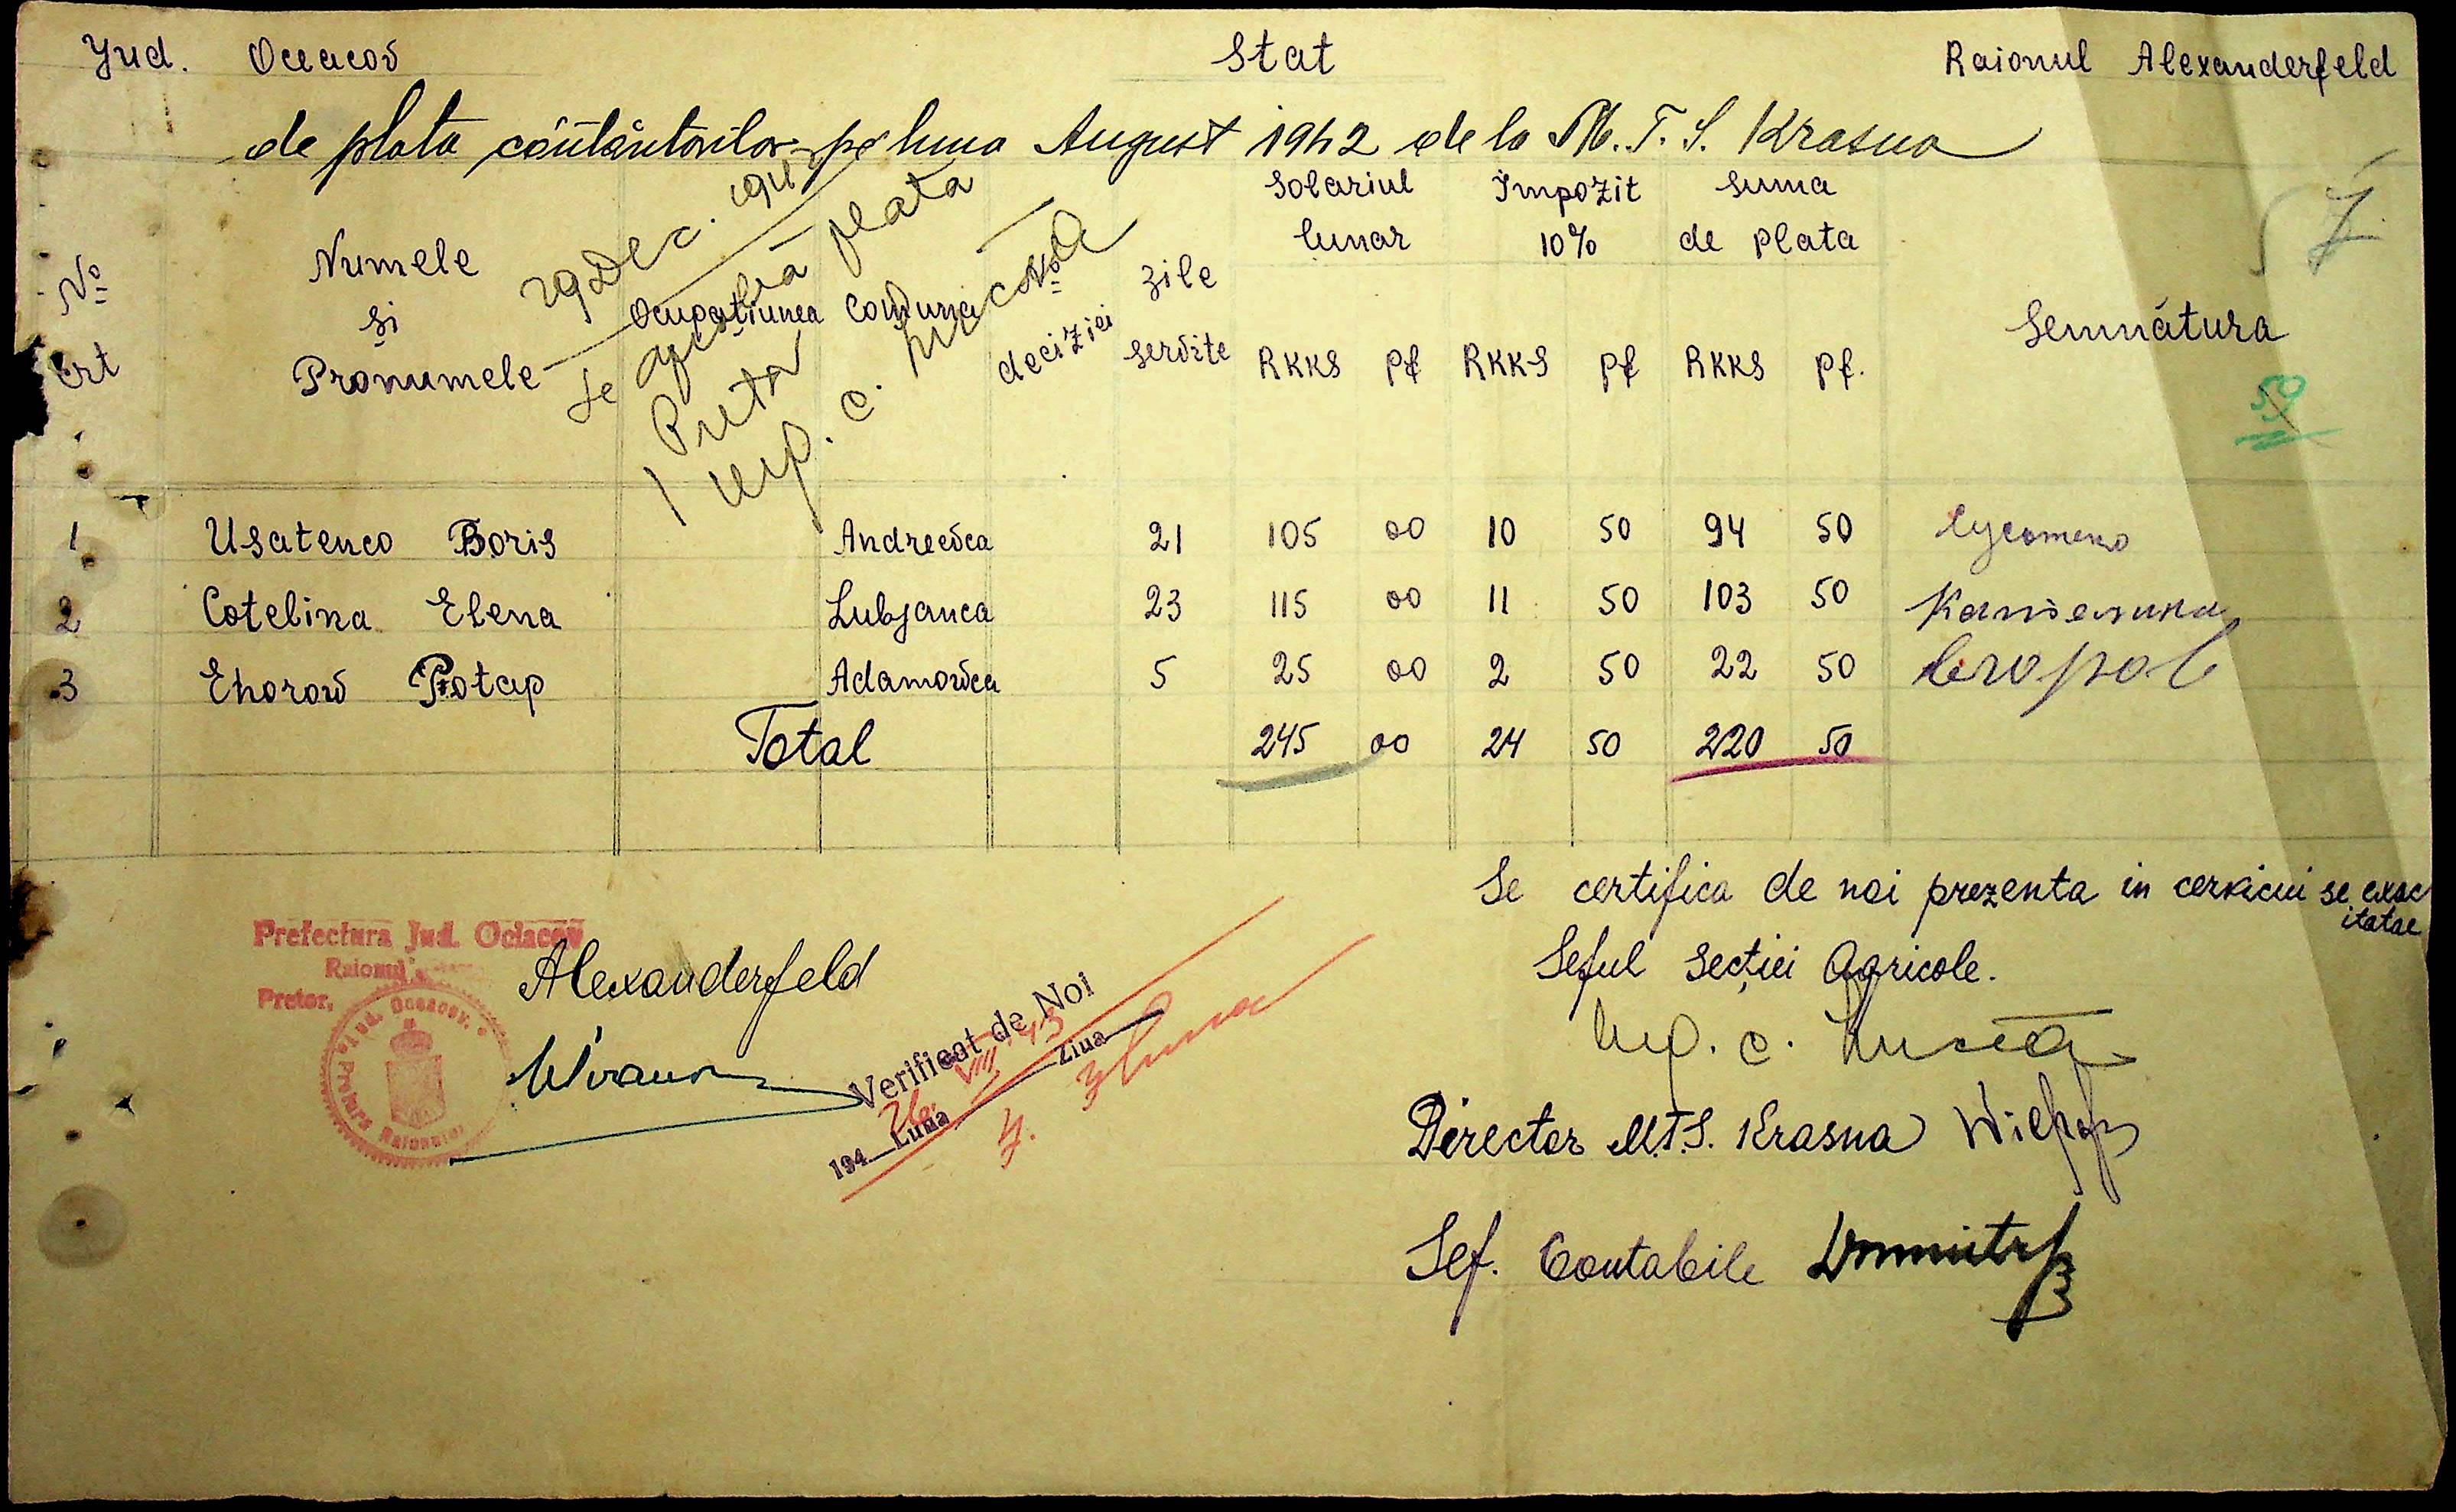 Jud. Oceacov Stat Raionul Alexanderfeld
de plata cântăritorilor pe luna August 1942 de la M. T. S. Krasna
29 Dec. 194
Se aprobă plata
Pretor
Nº crt
Numele și Pronumele
Ocupațiunea
Comuna
Nº deciziei
zile servite
Solariul lunar
RKKS pf
Impozit 10%
RKKS pf
Suma de plata
RKKS pf.
Semnătura
59
1 Usatenco Boris Andreevca 21 105 00 10 50 94 50
2 Cotelina Elena Lubjanca 23 115 00 11 50 103 50 Кателина
3 Ehorow Potap Adamowca 5 25 00 2 50 22 50
Total 245 00 24 50 220 50
Se certifica de noi prezenta in cerkicui se exac
itatae
Seful Secției Agricole.
Director M.T.S. Krasna
Sef. Contabile
Prefectura Jud. Ociacov
Raionul Alexanderfeld
Pretor,
Jud. Oceacov
Pretura Raionului
Verificat de Noi
194 Luna Ziua
26. VIII 43